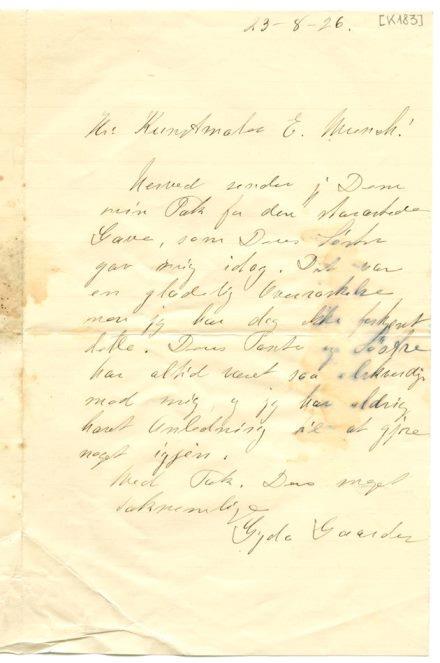 23-8-26. [K183]
Hr. Kunstmaler E. Munch!
Herved sender j Dem
min Tak for den storartede
Gave, som Deres Søster
gav mig idag. Det var
en glædelig Overraskelse
men jeg har dog ikke fortjent
dette. Deres Tante og Søstre
har altid været saa elskverdige
mod mig, og jeg har aldrig
havt Anledning til at gjøre
noget igjen.
Med Tak. Deres meget
taknemlige
Gyda Gaarder